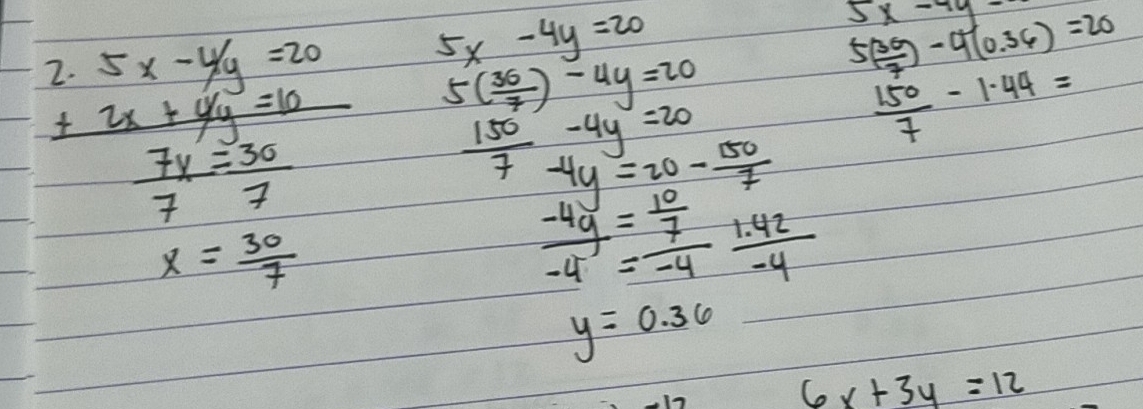 2. 5x - 4y = 20
+ 2x + 4y = 10
7x = 30
7 7
x = 30/7
5x - 4y = 20
5(30/7) - 4y = 20
150/7 - 4y = 20
-4y = 20 - 150/7
-4y = 10/7
-4 = -4 1.42/-4
y = 0.36
5x - 4y
5(30/7) - 4(0.36) = 20
150/7 - 1.44 =
=12
6x + 3y = 12